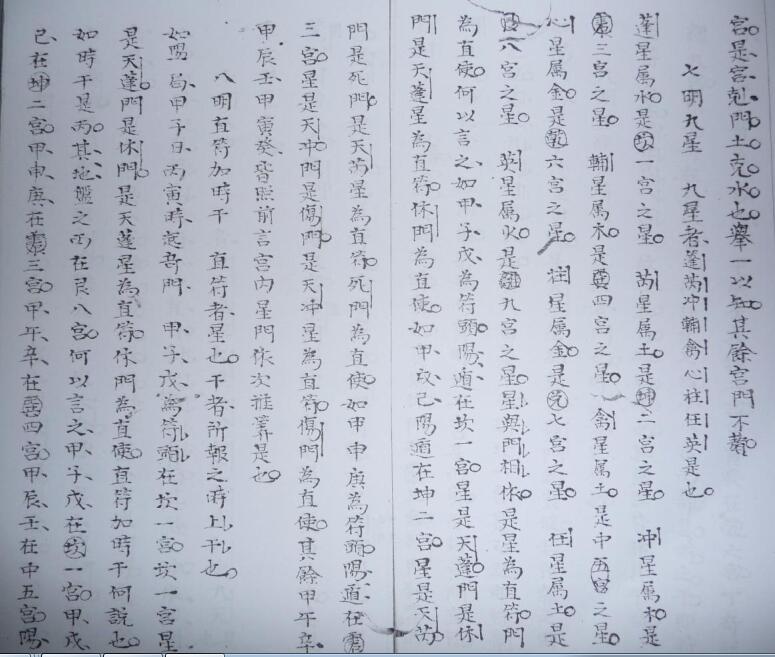 宮是宮剋門土克水也舉一以知其餘宮門不䓁
七明九星 九星者蓬芮冲輔禽心柱任英是也
蓬星属水是坎一宮之星 芮星属土是坤二宮之星 冲星属木是
震三宮之星 輔星属木是巽四宮之星 禽星属土是中五宮之星
心星属金是乾六宮之星 柱星属金是兌七宮之星 任星属土是
艮八宮之星 英星属火是離九宮之星星與門相依是星為直符門
為直使何以言之如甲子戊為符頭陽遁在坎一宮星是天蓬門是休
門是天蓬星為直符休門為直使如甲戌己陽遁在坤二宮星是天芮
門是死門是天芮星為直符死門為直使如甲申庚為符頭陽遁在震
三宮星是天冲門是傷門是天冲星為直符傷門為直使其餘甲午辛
甲辰壬甲寅癸皆照前言宮內星門依次推筭是也
八明直符加時干 直符者星也干者所報之時上干也
如陽局甲子日丙寅時起奇門 甲子戊為符頭在坎一宮坎一宮星
是天蓬門是休門是天蓬星為直符休門為直使直符加時干何說也
如時干是丙其地盤之丙在艮八宮何以言之甲子戊在坎一宮甲戌
己在坤二宮甲申庚在震三宮甲午辛在巽四宮甲辰壬在中五宮陽